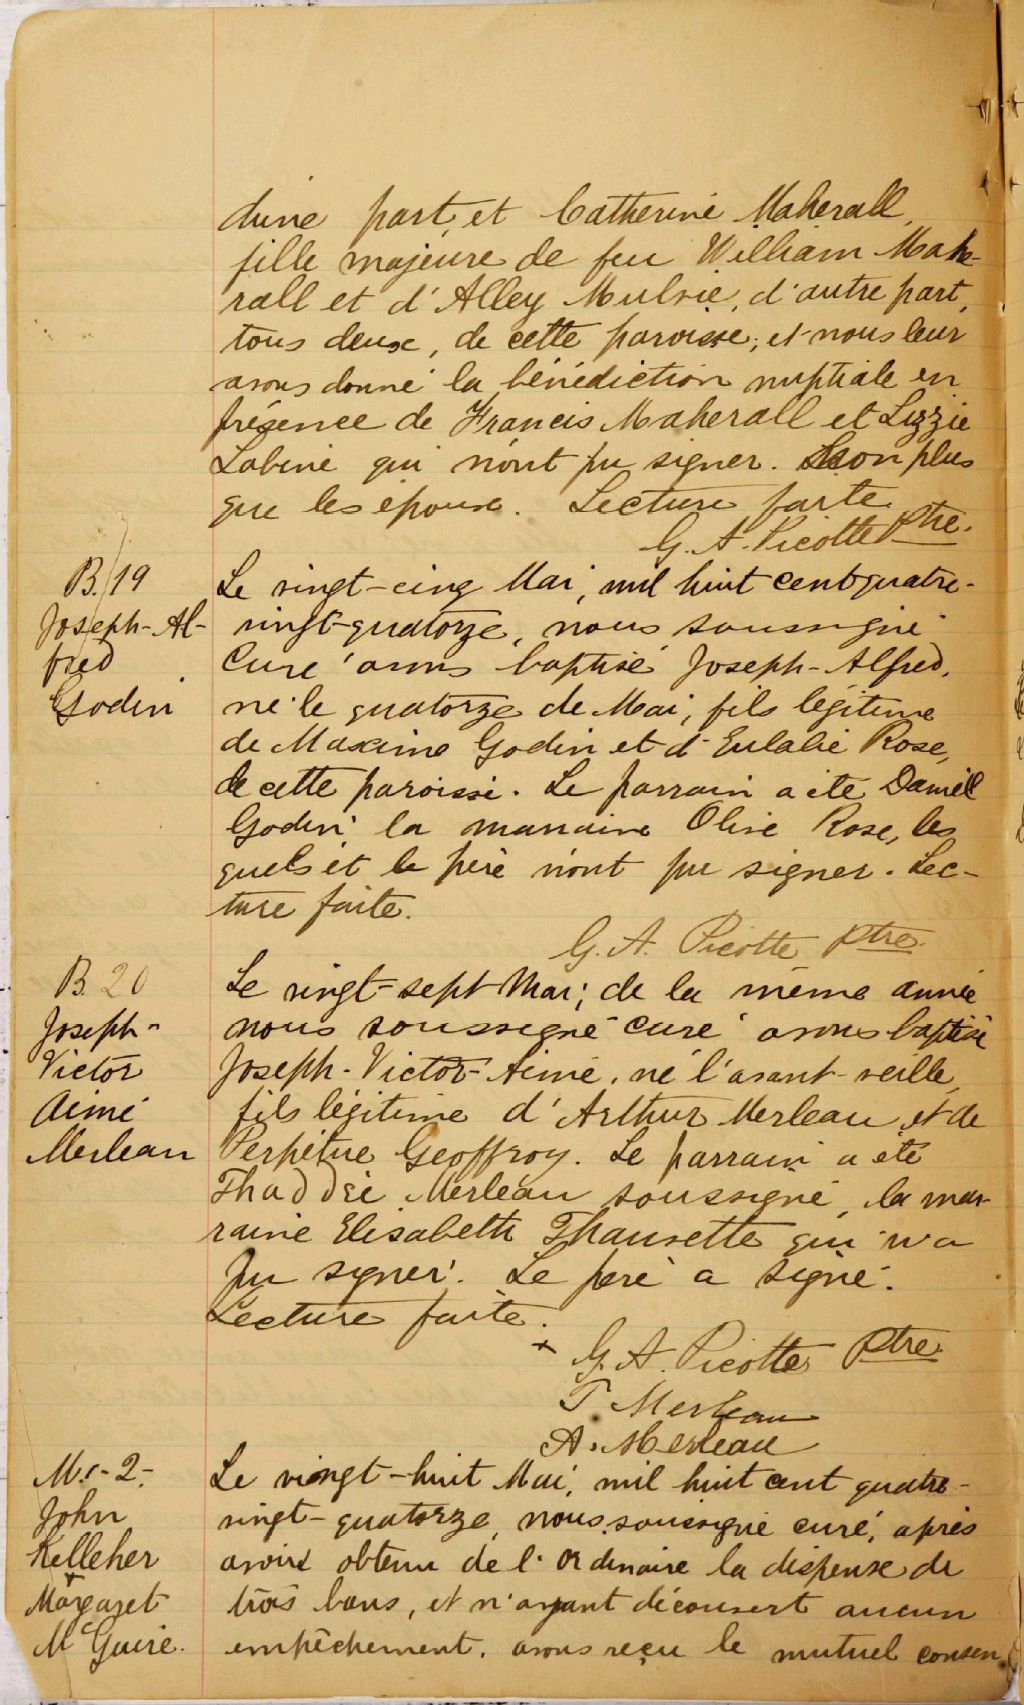 d'une part, et Catherine Maherall,
fille majeure de feu William Mahe-
rall et d'Alley Mulvie, d'autre part,
tous deux, de cette paroisse; et nous leur
avons donné la bénédiction nuptiale en
présence de Francis Maherall et Lizzie
Labine qui n'ont pu signer. Non plus
que les époux. Lecture faite.
G. A. Picotte Ptre.
B. 19
Joseph-Al-
fred
Godin
Le vingt-cinq Mai, mil huit cent quatre-
vingt-quatorze, nous soussigné
Curé avons baptisé Joseph-Alfred,
né le quatorze de Mai, fils légitime
de Maxime Godin et d'Eulalie Rose,
de cette paroisse. Le parrain a été Daniel
Godin la marraine Olive Rose, les
quels et le père n'ont pu signer. Lec-
ture faite.
G. A. Picotte Ptre.
B. 20
Joseph-
Victor
Aimé
Merleau
Le vingt-sept Mai; de la même année
nous soussigné curé avons baptisé
Joseph-Victor-Aimé, né l'avant-veille,
fils légitime d'Arthur Merleau et de
Perpétue Geoffroy. Le parrain a été
Thaddée Merleau soussigné, la mar-
raine Elisabeth Thausette qui n'a
pu signer. Le père a signé.
Lecture faite.
+ G. A. Picotte Ptre.
T Merleau
A. Merleau
M. - 2 -
John
Kelleher
+
Margaret
McGuire.
Le vingt-huit Mai, mil huit cent quatre-
vingt-quatorze, nous soussigné curé, après
avoir obtenu de l'Ordinaire la dispense de
trois bans, et n'ayant découvert aucun
empêchement, avons reçu le mutuel consen